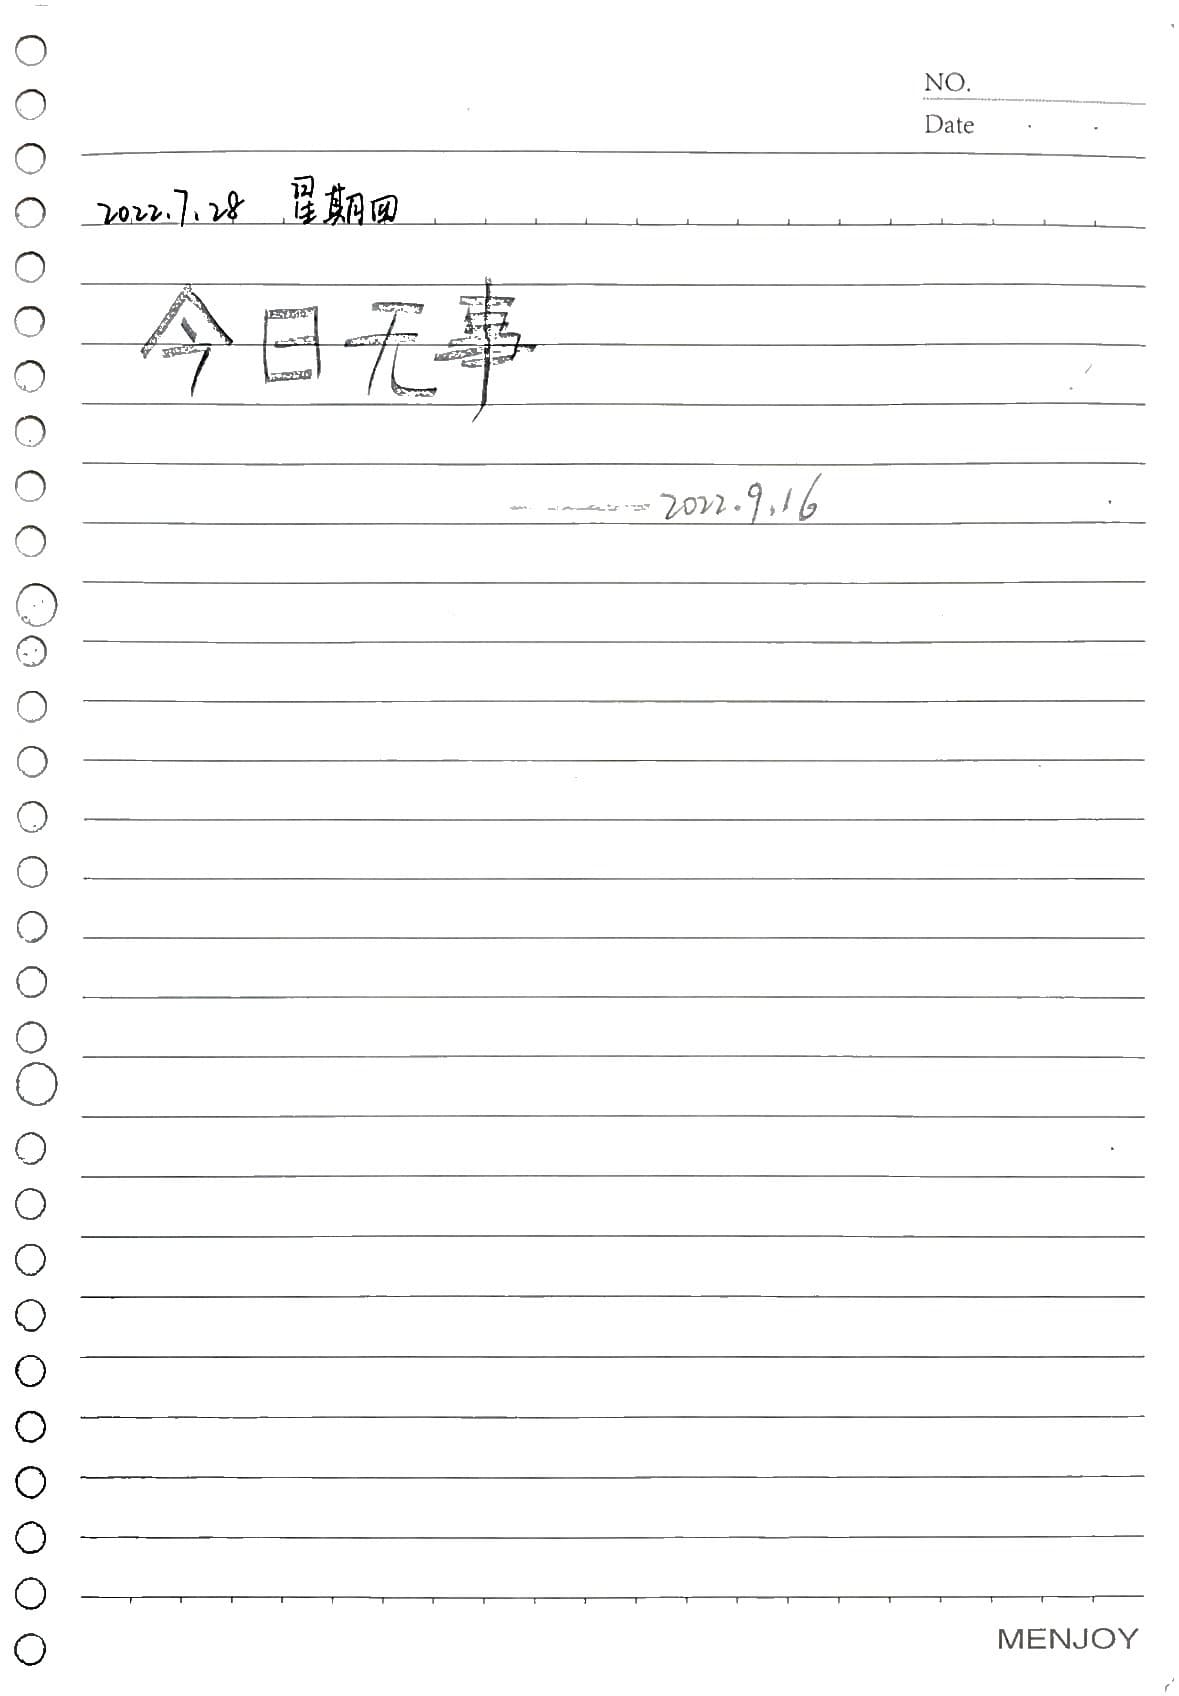 NO.
Date
2022.7.28 星期四
今日无事
——2022.9.16
MENJOY